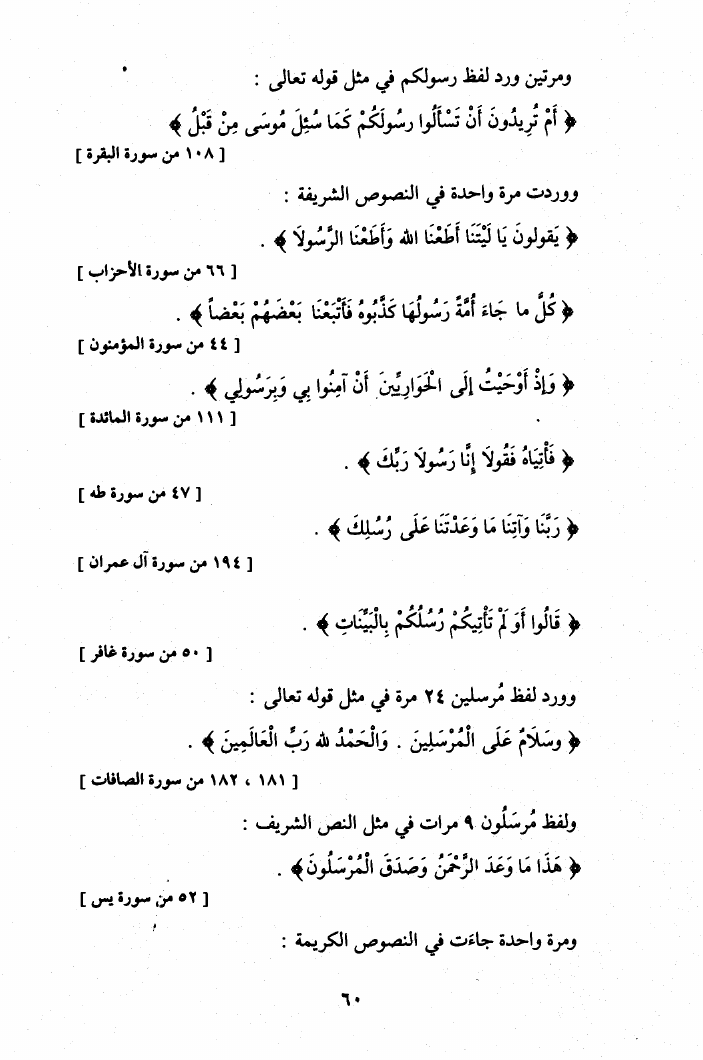 ومرتين ورد لفظ رسولكم في مثل قوله تعالى :
﴿ أَمْ تُرِيدُونَ أَنْ تَسْأَلُوا رسُولَكُمْ كَمَا سُئِلَ مُوسَى مِنْ قَبْلُ ﴾
[ ١٠٨ من سورة البقرة ]
ووردت مرة واحدة في النصوص الشريفة :
﴿ يَقولونَ يَا لَيْتَنَا أَطَعْنَا الله وَأَطَعْنَا الرَّسُولَا ﴾ .
[ ٦٦ من سورة الأحزاب ]
﴿ كُلَّ ما جَاءَ أُمَّةً رَسُولُهَا كَذَّبُوهُ فَأَتْبَعْنَا بَعْضَهُمْ بَعْضاً ﴾ .
[ ٤٤ من سورة المؤمنون ]
﴿ وَإِذْ أَوْحَيْتُ إِلَى الْحَوَارِيِّينَ أَنْ آمِنُوا بِي وَبِرَسُولِي ﴾ .
[ ١١١ من سورة المائدة ]
﴿ فَأْتِيَاهُ فَقُولَا إِنَّا رَسُولَا رَبِّكَ ﴾ .
[ ٤٧ من سورة طه ]
﴿ رَبَّنَا وَآتِنَا مَا وَعَدْتَنَا عَلَى رُسُلِكَ ﴾ .
[ ١٩٤ من سورة آل عمران ]
﴿ قَالُوا أَوَ لَمْ تَأْتِيكُمْ رُسُلُكُمْ بِالْبَيِّنَاتِ ﴾ .
[ ٥٠ من سورة غافر ]
وورد لفظ مُرسلين ٢٤ مرة في مثل قوله تعالى :
﴿ وسَلَامٌ عَلَى الْمُرْسَلِينَ . وَالْحَمْدُ لله رَبِّ الْعَالَمِينَ ﴾ .
[ ١٨١ ، ١٨٢ من سورة الصافات ]
ولفظ مُرسَلُون ٩ مرات في مثل النص الشريف :
﴿ هَذَا مَا وَعَدَ الرَّحْمَنُ وَصَدَقَ الْمُرْسَلُونَ ﴾ .
[ ٥٢ من سورة يس ]
ومرة واحدة جاءَت في النصوص الكريمة :
٦٠